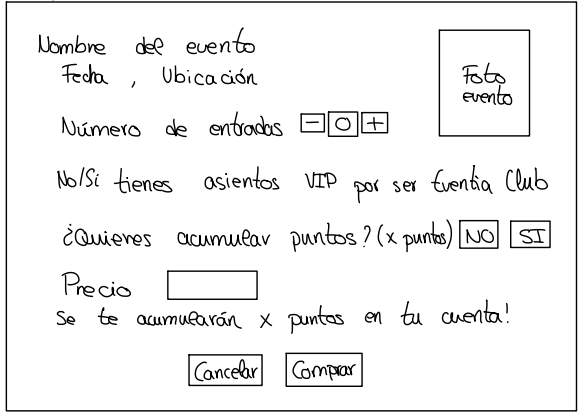 Nombre del evento
Foto evento
Fecha , Ubicación
Número de entradas - 0 +
No/Sí tienes asientos VIP por ser Eventia Club
¿Quieres acumular puntos? (x puntos) NO SI
Precio
Se te acumularán x puntos en tu cuenta!
Cancelar Comprar